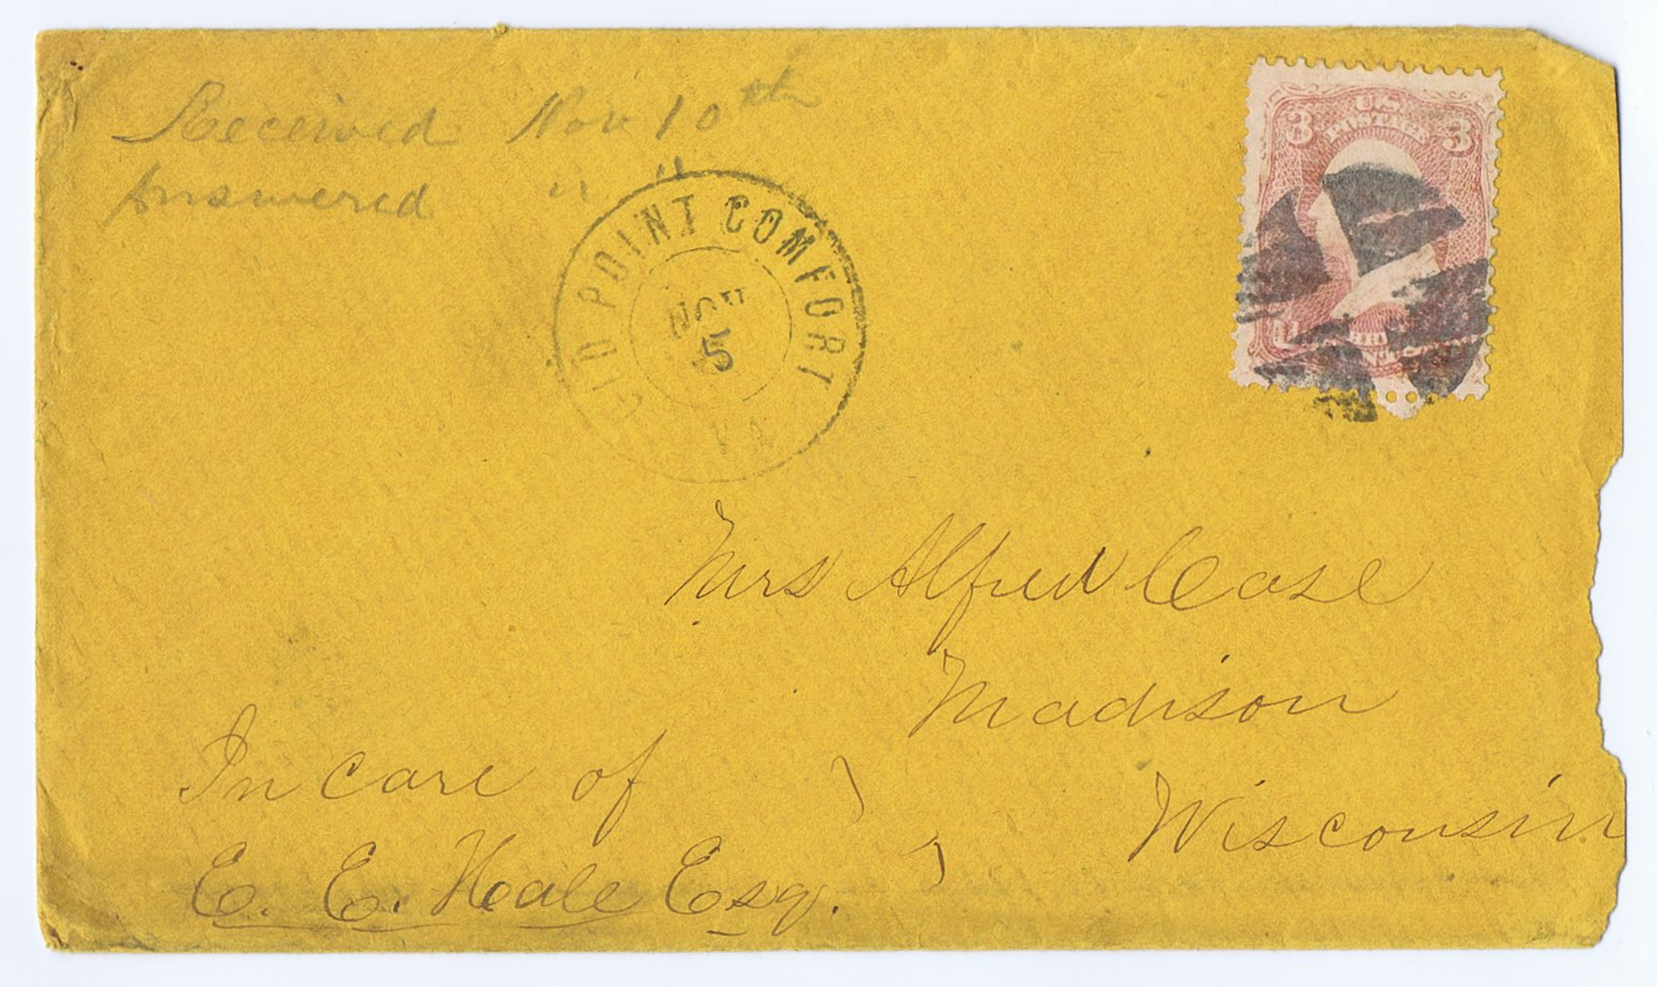 Received Nov 10th
Answered " "
OLD POINT COMFORT
NOV
5
VA
U.S.
POSTAGE
3 3
Mrs Alfred Case
Madison
Wisconsin
In care of
E. E. Hale Esqr.